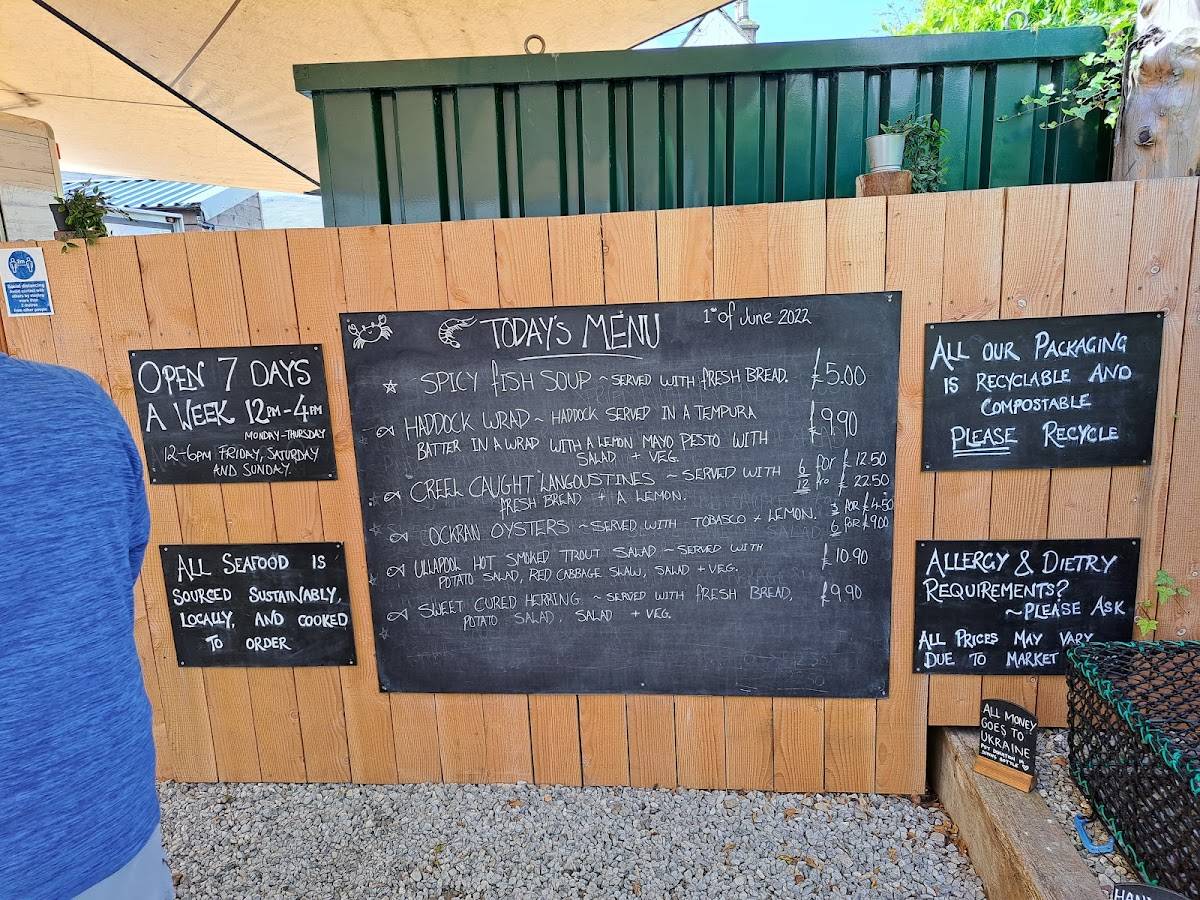 2m
Social distancing
Avoid contact with
others by staying
more than
2 metres
from other people
OPEN 7 DAYS
A WEEK 12PM-4PM
MONDAY-THURSDAY
12-6PM FRIDAY, SATURDAY
AND SUNDAY.
ALL SEAFOOD IS
SOURCED SUSTAINABLY,
LOCALLY, AND COOKED
TO ORDER
TODAY'S MENU
1st of June 2022
SPICY FISH SOUP ~ SERVED WITH FRESH BREAD. £5.00
HADDOCK WRAP ~ HADDOCK SERVED IN A TEMPURA £9.90
BATTER IN A WRAP WITH A LEMON MAYO PESTO WITH
SALAD + VEG.
CREEL CAUGHT LANGOUSTINES ~ SERVED WITH 6 for £12.50
FRESH BREAD + A LEMON. 12 for £22.50
OCKRAN OYSTERS ~ SERVED WITH TOBASCO + LEMON. 3 FOR £4.50
6 FOR £9.00
ULLAPOOL HOT SMOKED TROUT SALAD ~ SERVED WITH £10.90
POTATO SALAD, RED CABBAGE SLAW, SALAD + VEG.
SWEET CURED HERRING ~ SERVED WITH FRESH BREAD, £9.90
POTATO SALAD, SALAD + VEG.
ALL OUR PACKAGING
IS RECYCLABLE AND
COMPOSTABLE
PLEASE RECYCLE
ALLERGY & DIETRY
REQUIREMENTS?
~PLEASE ASK
ALL PRICES MAY VARY
DUE TO MARKET
ALL MONEY
GOES TO
UKRAINE
PUT DONATION IN
BOTTLE
HAND